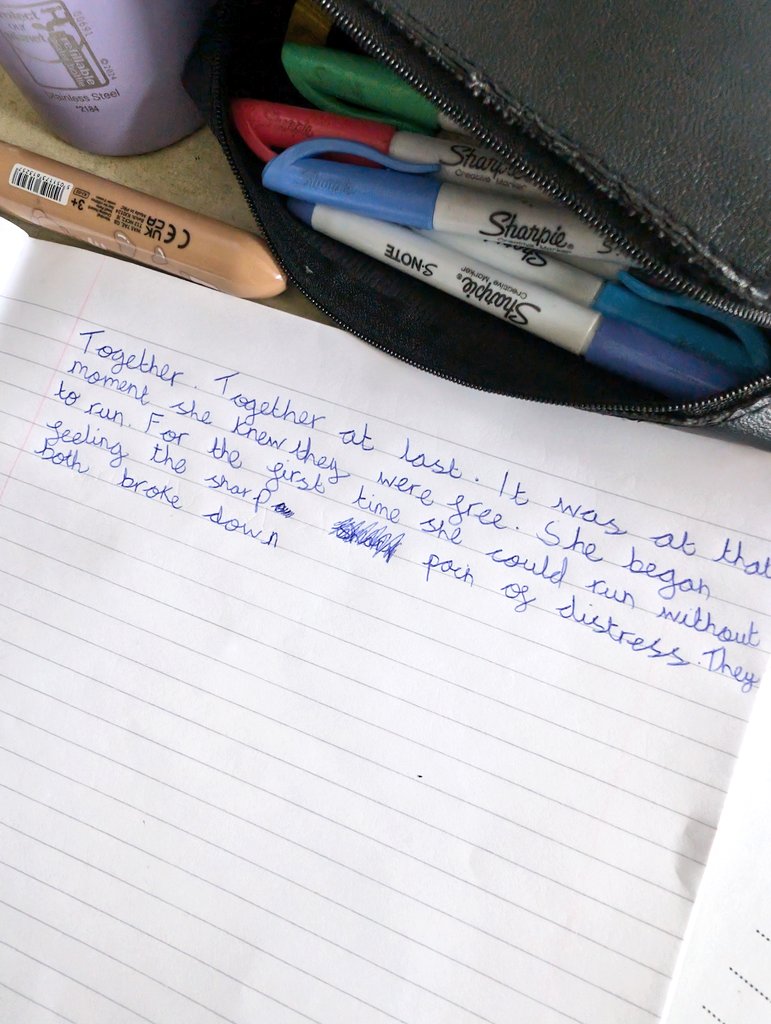 Stainless Steel
*2184
©2024
3+
UKCA
CE
Sharpie
Creative Marker
Sharpie
Sharpie
S-NOTE
Sharpie
Creative Marker
Together. Together at last. It was at that
moment she knew they were free. She began
to run. For the first time she could run without
feeling the sharp pain of distress. They
both broke down